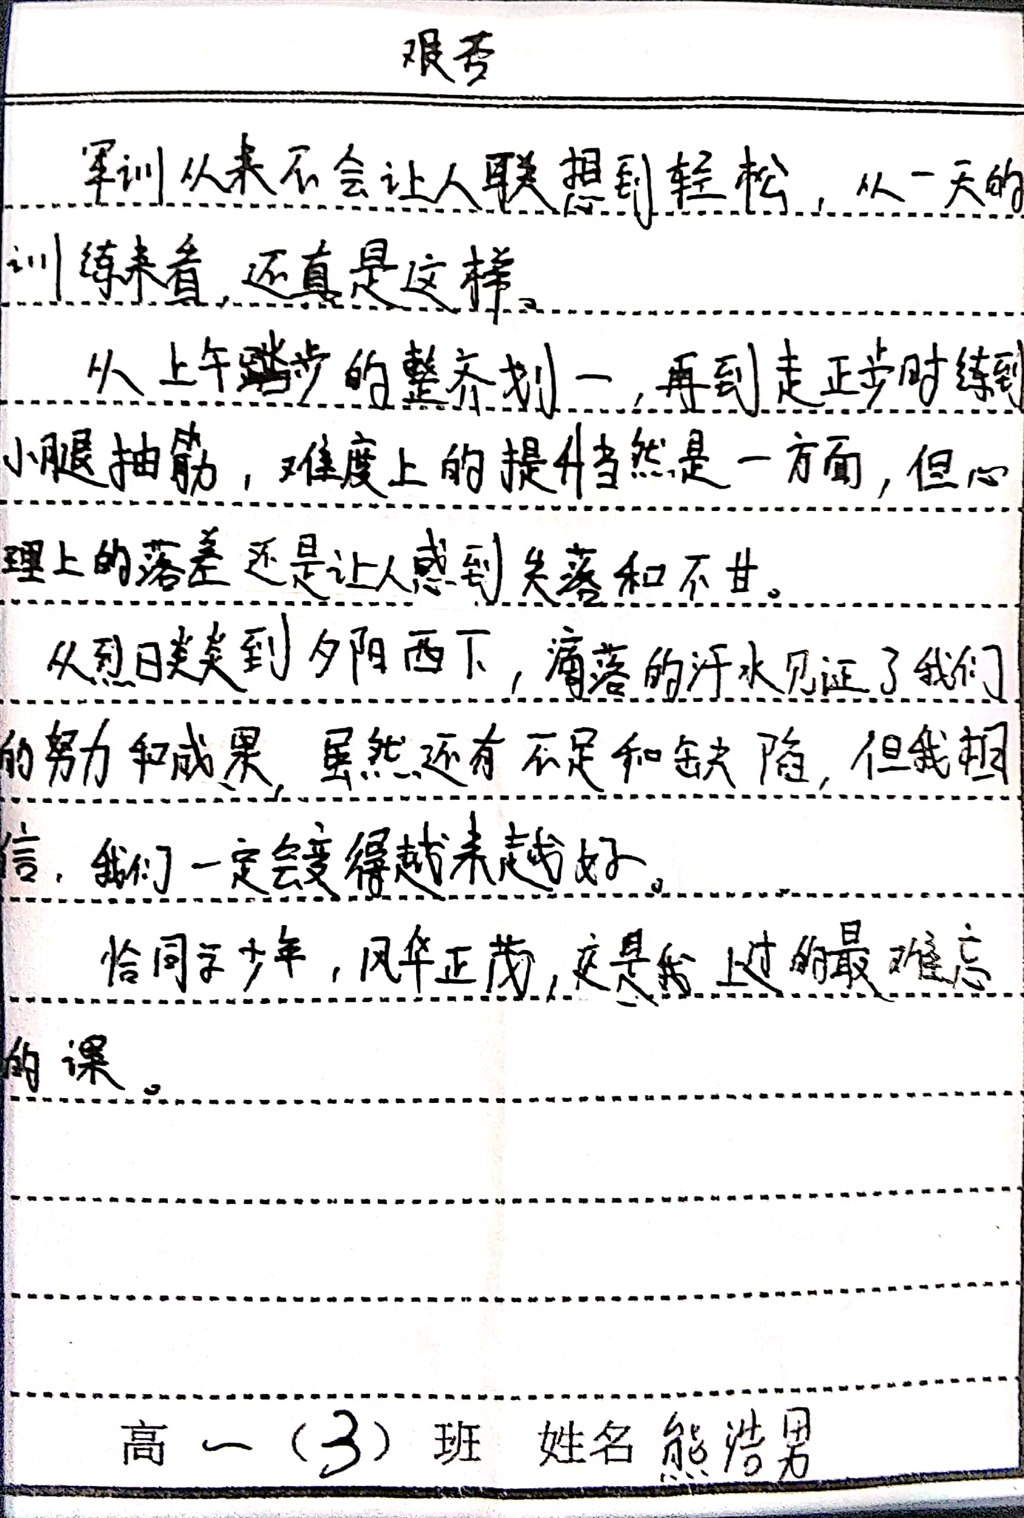 艰苦
军训从来不会让人联想到轻松，从一天的
训练来看，还真是这样。
从上午踏步的整齐划一，再到走正步时练到
小腿抽筋，难度上的提升当然是一方面，但心
理上的落差还是让人感到失落和不甘。
从烈日炎炎到夕阳西下，滴落的汗水见证了我们
的努力和成果，虽然还有不足和缺陷，但我相
信，我们一定会变得越来越好。
恰同学少年，风华正茂，这是我上过的最难忘
的课。
高一（3）班 姓名 熊浩男